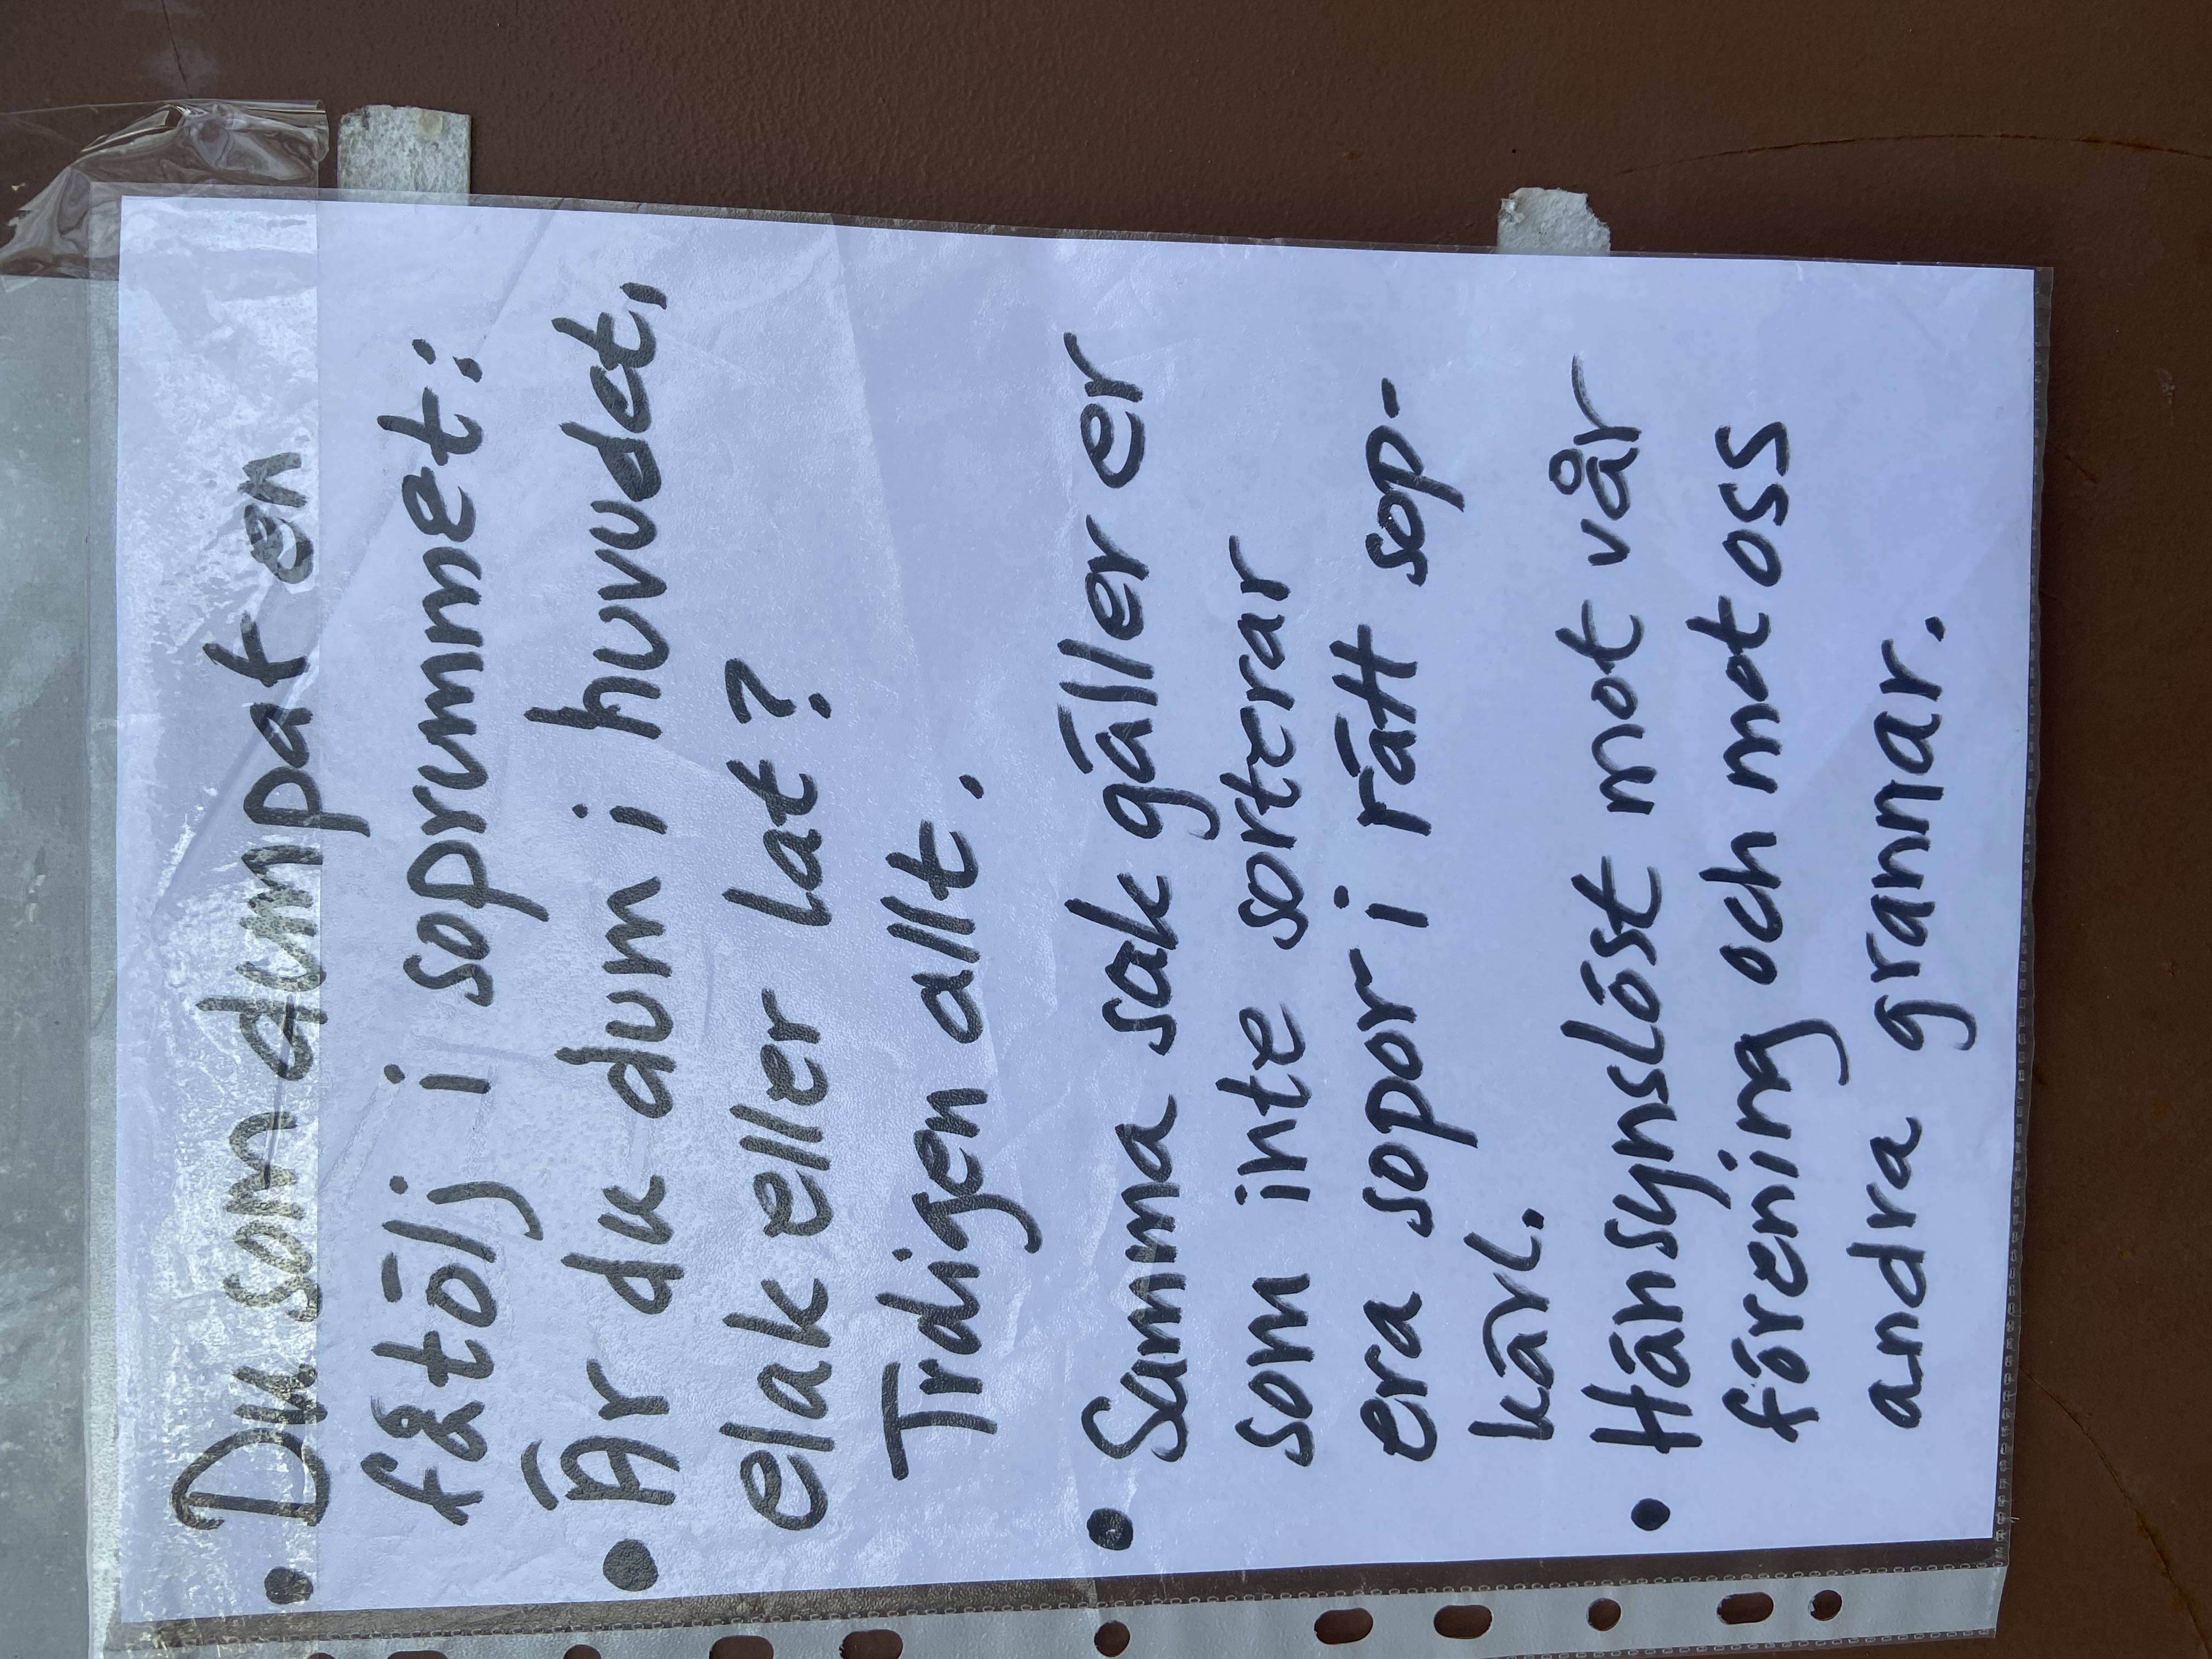 • Du som dumpat en
fåtölj i soprummet:
• Är du dum i huvudet,
elak eller lat?
Trdigen allt.
• Samma sak gäller er
som inte sorterar
era sopor i rätt sop-
kärl.
• Hänsynslöst mot vår
förening och mot oss
andra grannar.